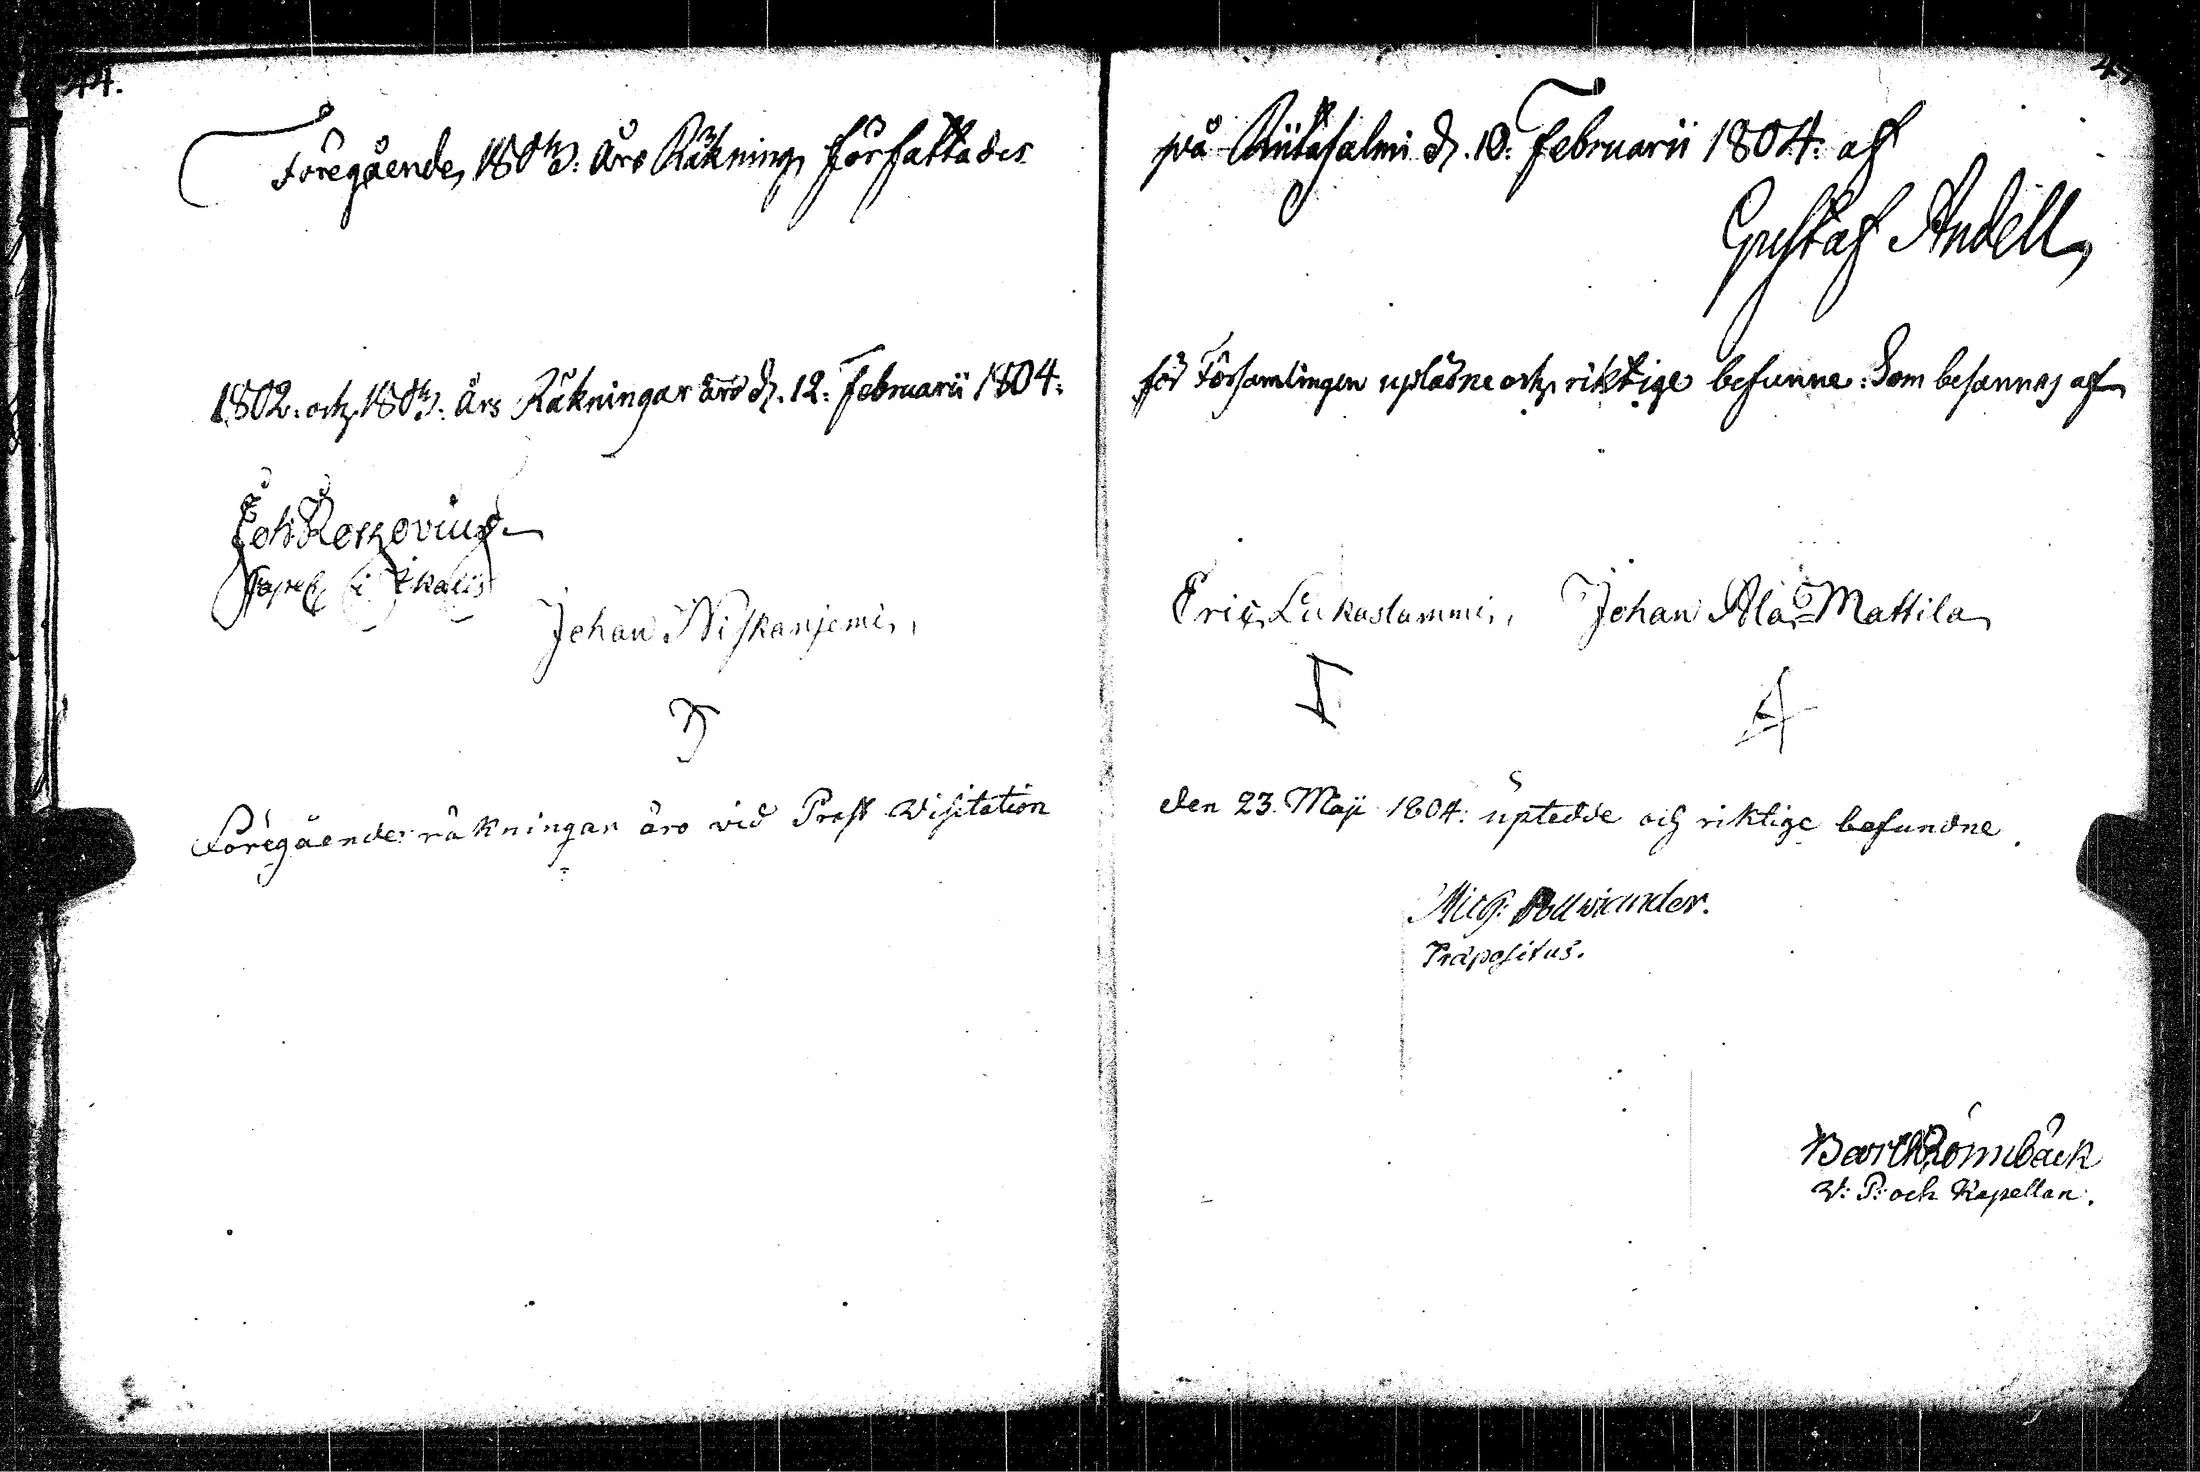 44.
Föregående, 1803: Års Räkning författades
1802: och 1803: Års Räkningar äro d. 12: Februarii 1804:
Joh: Roskovius
Capell: i Ikalis
Johan Niskanjemi,
Föregående räkningar äro vid Prost Visitation
på d. 10: Februarii 1804: af
Gustaf Andell
för Församlingen upläsne och riktige befunne: Som besannas af
Eric Lukaslammi, Johan Ala-Mattila
den 23. Maji 1804: uptedde och riktige befundne.
Mich:
Präpositus.
Barth Rönnbäck
V: P: och Kapellan.